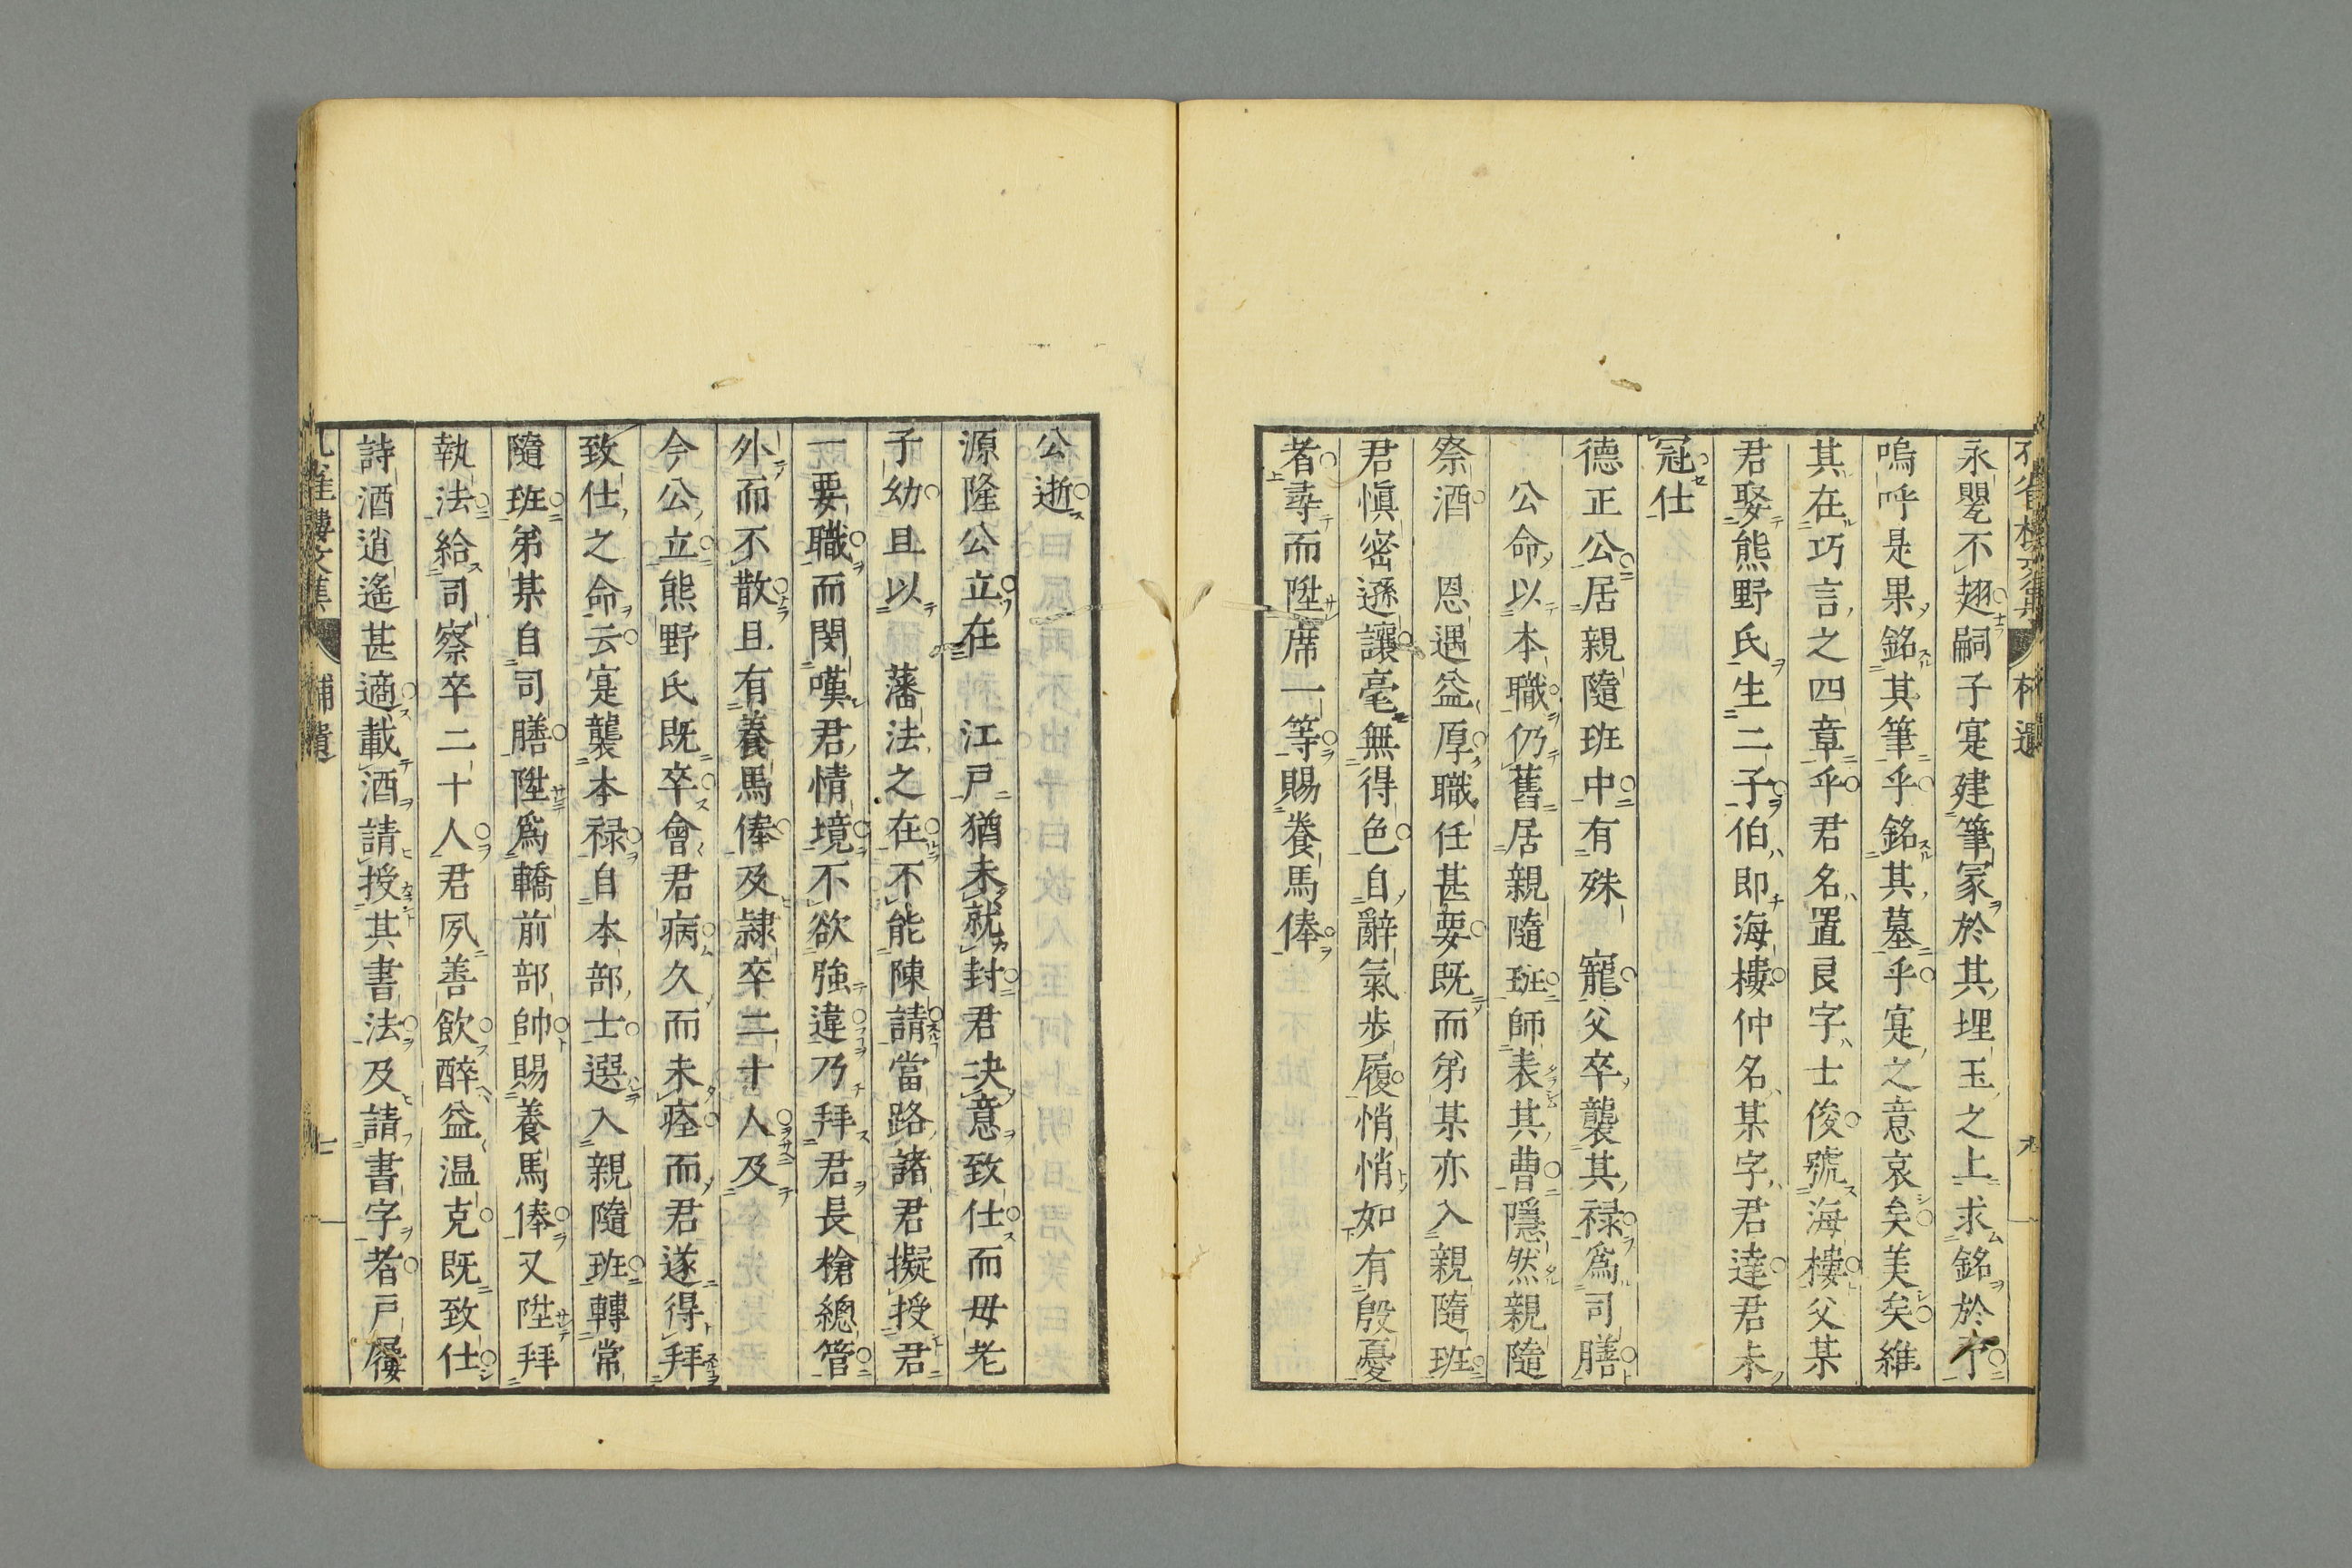 永翣不翅嗣子寔建筆冢於其埋玉之上求銘於予
嗚呼是果銘其筆乎銘其墓乎寔之意哀矣美矣維
其在巧言之四章乎君名置良字士俊號海樓父某
君娶熊野氏生二子伯即海樓仲名某字君達君未
冠仕
德正公居親隨班中有殊 寵父卒襲其祿爲司膳
公命以本職仍舊居親隨班師表其曹隱然親隨
祭酒 恩遇益厚職任甚要既而弟某亦入親隨班
君愼密遜讓毫無得色自辭氣歩履悄悄如有殷憂
者尋而陞席一等賜養馬俸
公逝
源隆公立在 江戸猶未就封君决意致仕而母老
子幼且以 藩法之在不能陳請當路諸君擬授君
一要職而閔嘆君情境不欲強違乃拜君長槍總管
外而不散且有養馬俸及隷卒二十人及
今公立熊野氏既卒會君病久而未痊而君遂得拜
致仕之命云寔襲本祿自本部士選入親隨班轉常
隨班弟某自司膳陞爲轎前部帥賜養馬俸又陞拜
執法給司察卒二十人君夙善飲醉益温克既致仕
詩酒逍遙甚適載酒請授其書法及請書字者戸屨
補遺
七